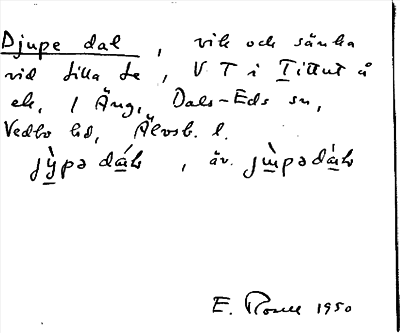 Djupe dal, vik och sänka
vid Lilla Le, V T i Tittut å
ek. 1 Äng, Dals-Eds sn,
Vedbo hd, Älvsb. l.
jỳ̲pə dá̲l, äv.
E. 1950